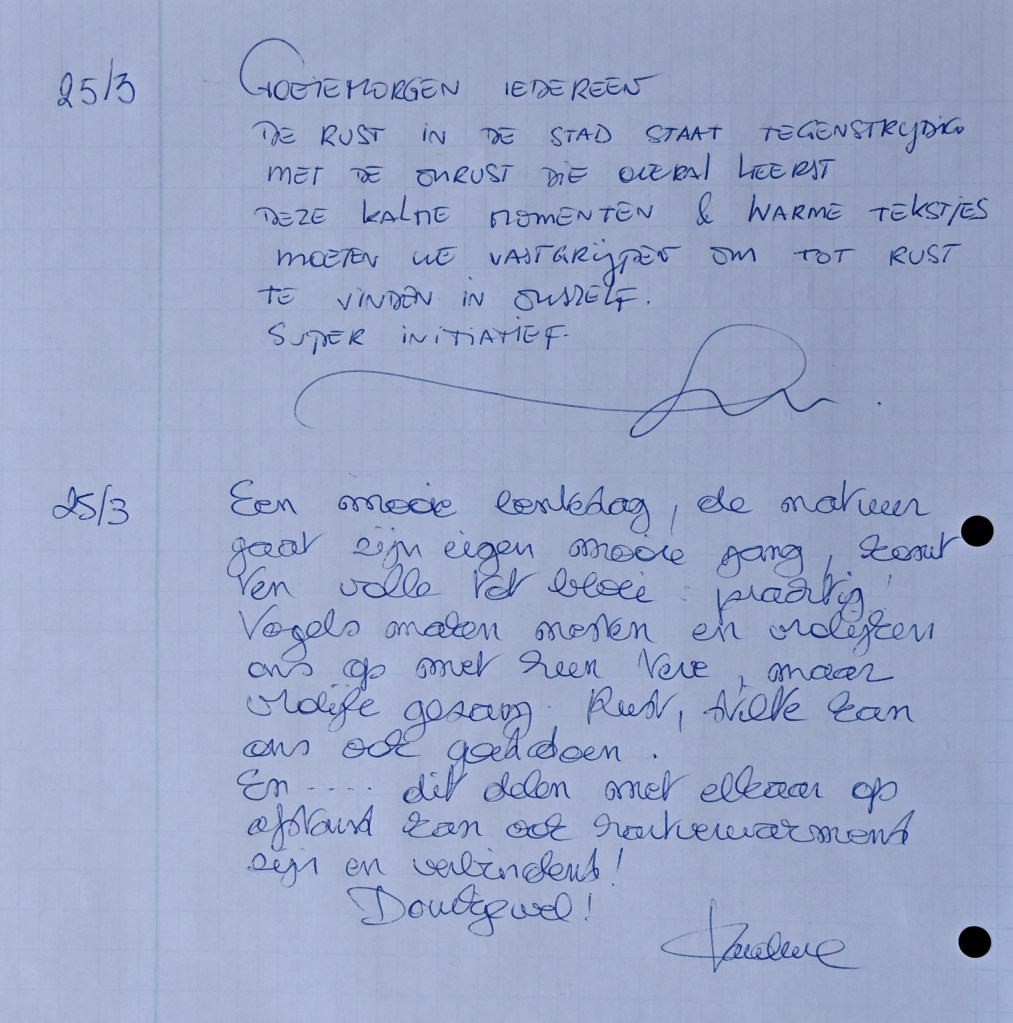 25/3 GOEIEMORGEN IEDEREEN
DE RUST IN DE STAD STAAT TEGENSTRIJDIG
MET DE ONRUST DIE OVERAL HEERST
DEZE KALME MOMENTEN & WARME TEKSTJES
MOETEN WE VASTGRIJPEN OM TOT RUST
TE VINDEN IN ONSZELF.
SUPER INITIATIEF.
25/3 Een mooie lentedag, de natuur
gaat zijn eigen mooie gang, komt
ten volle tot bloei : prachtig!
Vogels maken nesten en vrolijken
ons op met hun, maar
vrolijke gezang. Rust, stilte kan
ons ook goed doen.
En .... dit delen met elkaar op
afstand kan ook hartverwarmend
zijn en verbindend!
Dankjewel!